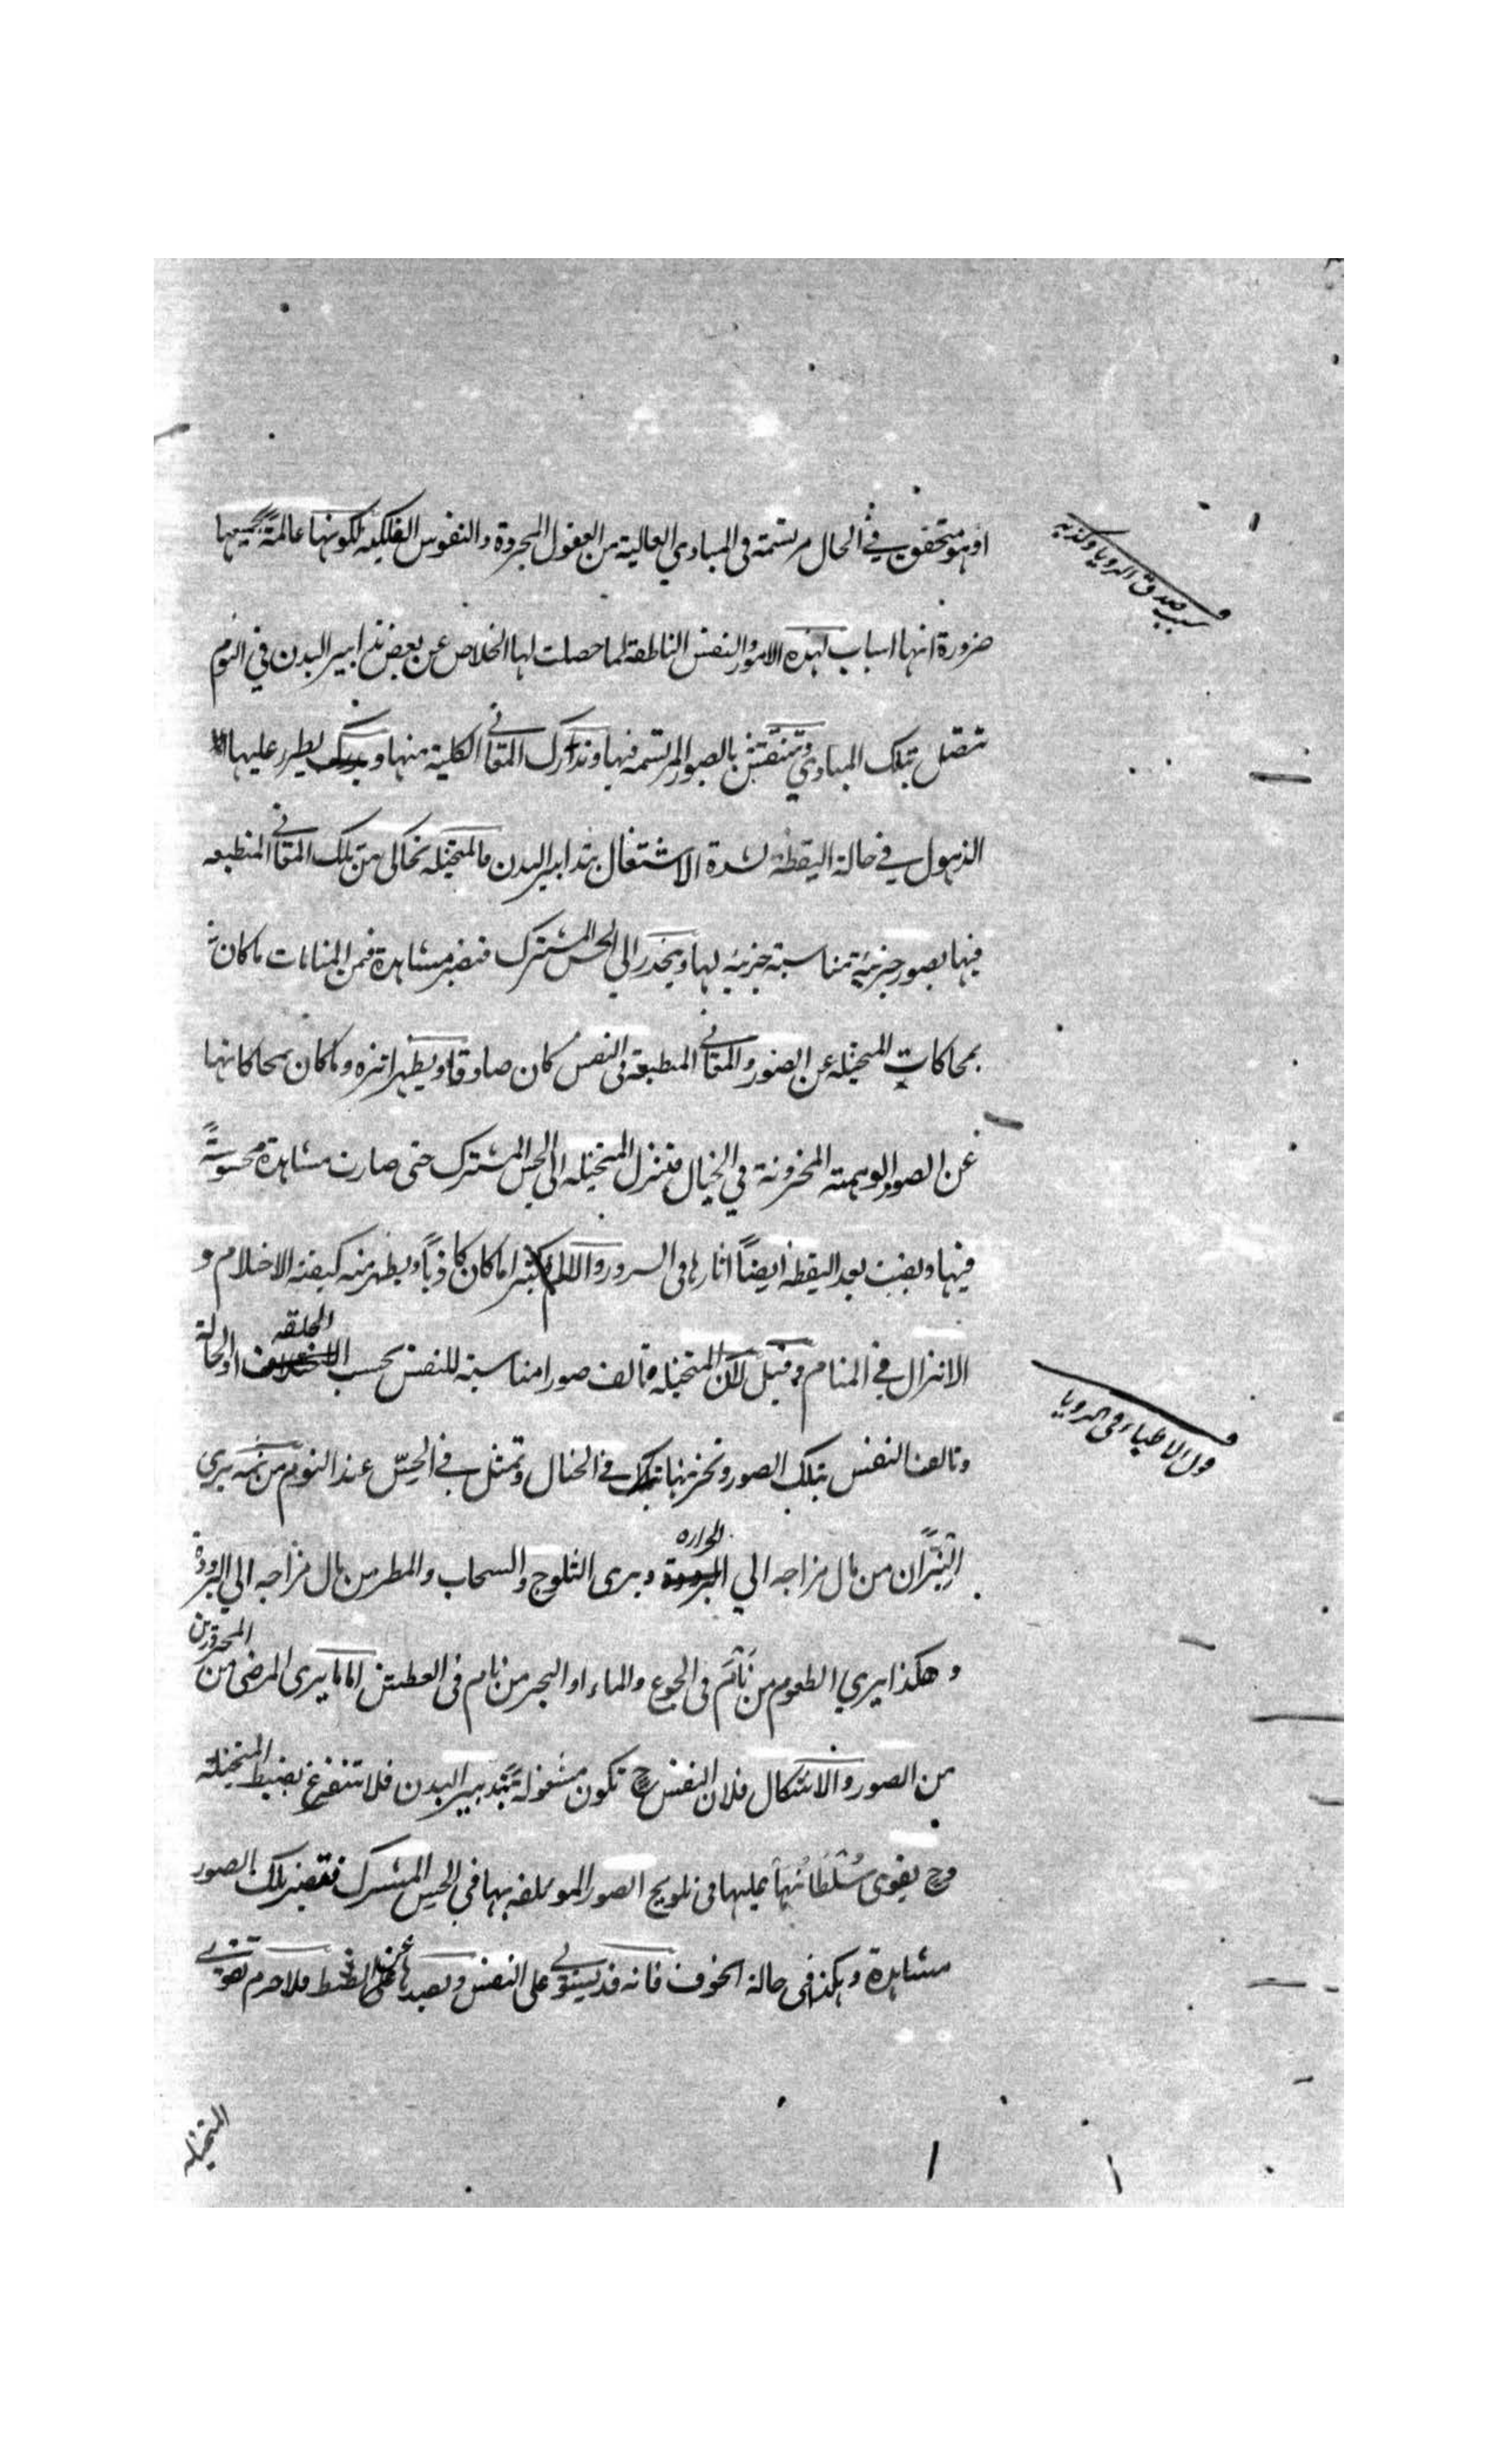 او هو متحقق في الحال مرتسمة فى المبادي العالية من العقول المجردة والنفوس الفلكيه لكونها عالمة بجميعها
سبب صدق الرويا وكذبه
ضرورة انها اسباب لهذه الامور والنفس الناطقة لما حصلت لها الخلاص عن بعض تدابير البدن في النوم
تتصل بتلك المبادي وتنتقش بالصور المرتسمة فيها وتدرك المعاني الكلية منها و يطرء عليها
الذهول في حالة اليقظة لشدة الاشتغال بتدابير البدن فالمتخيله تحاكى من تلك المعاني المنطبعه
فيها بصور جزئية مناسبة جزئيه لها وينحدر الي الحس المشترك فتصير مشاهدة فمن المنامات ما كان
بمحاكات المتخيله عن الصور والمعاني المنطبعة فى النفس كان صادقا ويظهر اثره وما كان بمحاكاتها
عن الصور الوهمية المخزونة في الخيال فتنزل المتخيله الى الحس المشترك حتى صارت مشاهدة محسوسةً
فيها وبقيت بعد اليقظه ايضاً اثارها فى السرور والالم كثيرا ما كان كاذباً ويظهر منه كيفية الاحلام و
الانزال في المنام وقيل لان المتخيله تالف صورا مناسبة للنفس بحسب الخلقه او الحالة
قول الاطباء فى الرويا
وتالف النفس بتلك الصور وتخزنها في الخيال وتمثل في الحسّ عند النوم من ثمه يرى
النيّران من مال مزاجه الي الحراره ويرى الثلوج والسحاب والمطر من مال مزاجه الي البرودة
وهكذا يري الطعوم من نام فى الجوع والماء او البحر من نام فى العطش اما ما يرى المرضى من المحرورين
من الصور والاشكال فلان النفس ح تكون مشغولة بتدبير البدن فلا تتفرغ بضبط المتخيله
وح يقوى سُلْطَانُهَا عليها فى تلويح الصور الموتلفه بها في الحس المشترك فتصير تلك الصور
مشاهدة وهكذا فى حالة الخوف فانه قد يستولي على النفس و عن الضبط فلا جرم تقوى
المتخيله